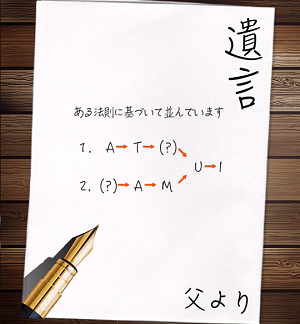 遺言
ある法則に基づいて並んでいます
1. A→T→(?)
U→I
2. (?)→A→M
父より